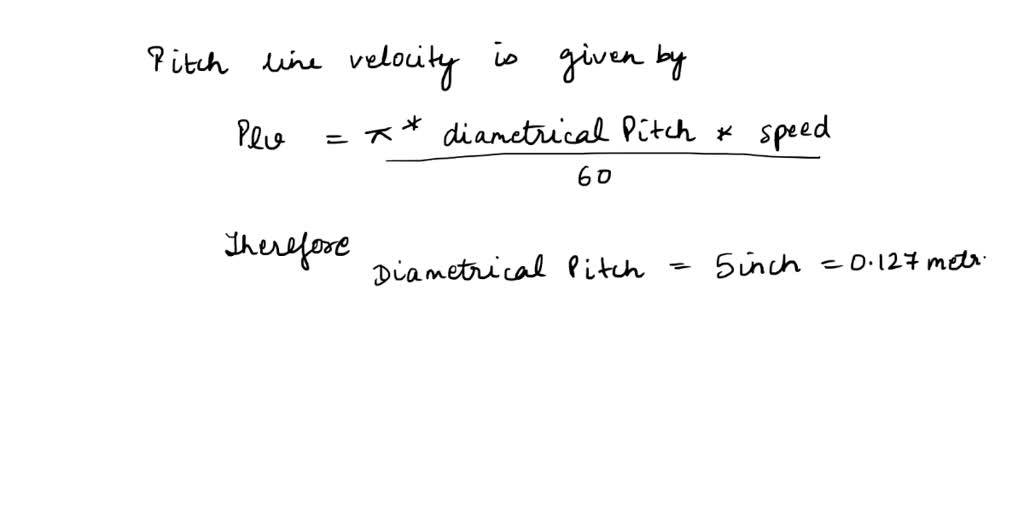 Pitch line velocity is given by
Plv = π * diametrical Pitch * speed
60
Therefore
Diametrical Pitch = 5inch = 0.127 metr.